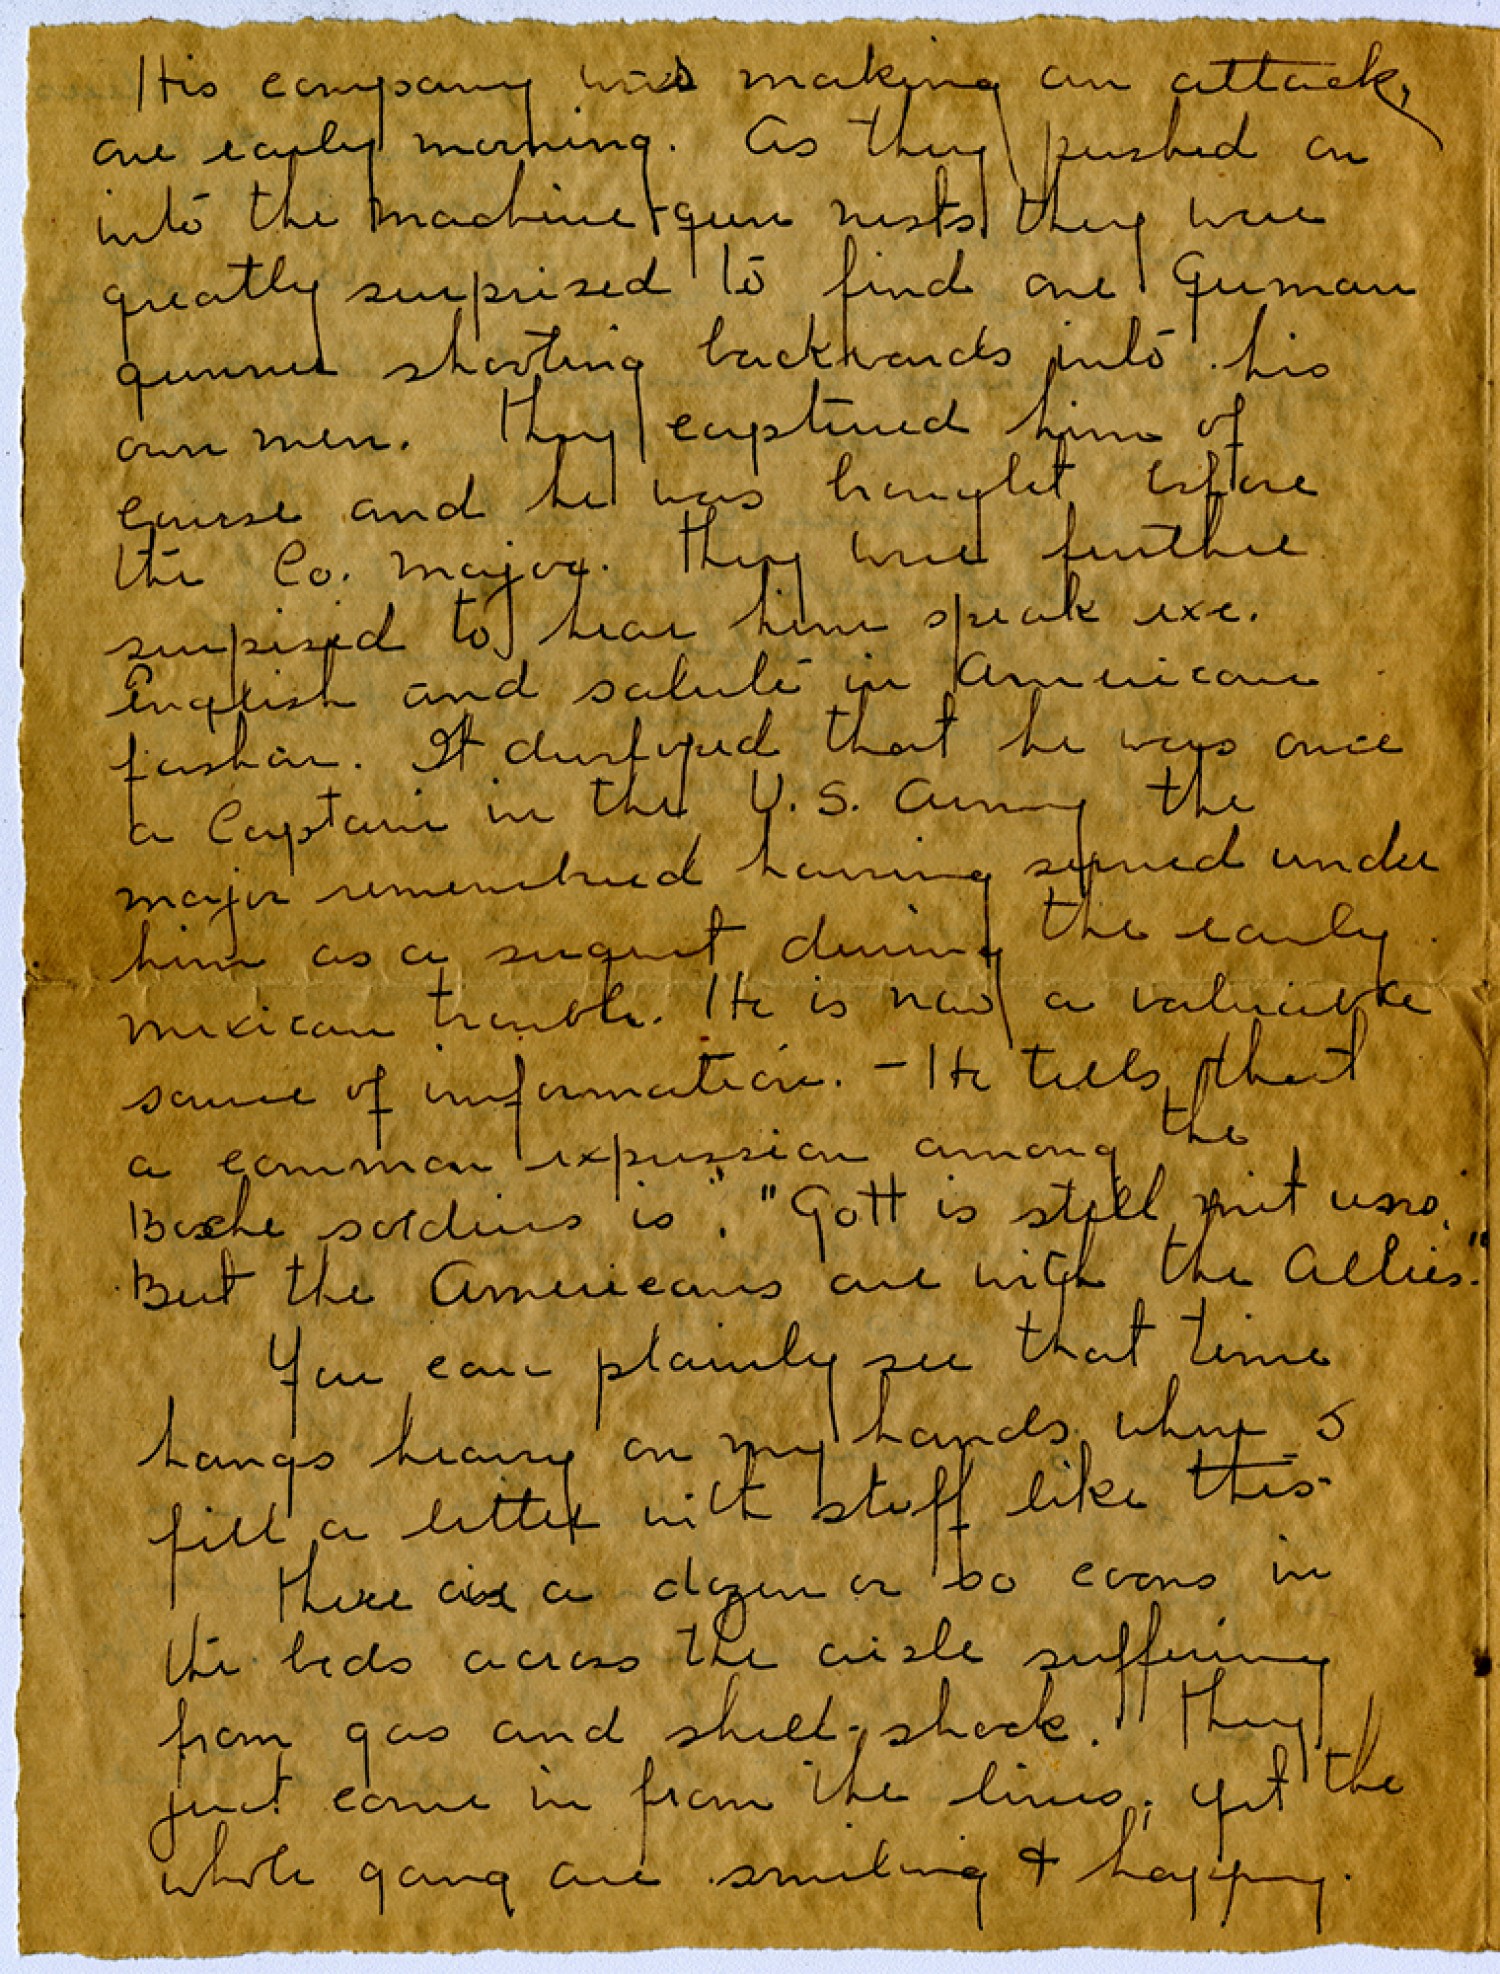 His company was making an attack,
one early morning. As they pushed on
into the machine-gun nests they were
greatly surprised to find one German
gunner shooting backwards into his
own men. They captured him of
course and he was brought before
the Co. Major. They were further
surpised to hear him speak exc.
English and salute in American
fashon. It
that he was once
a Captain in the U.S. Army the
major remembered having served under
him as a sergent during the early
Mexican trouble. He is now a valuable
source of information. - He tells that
a common expression among the
Boche soldiers is, "Gott is still mit uns.
But the Americans are with the Allies."
You can plainly see that time
hangs heavy on my hands when I
fill a letter with stuff like this.
There are a dozen or so coons in
the beds across the aisle suffering
from gas and shell-shock. They
just came in from the lines; yet the
whole gang are smiling & happy.